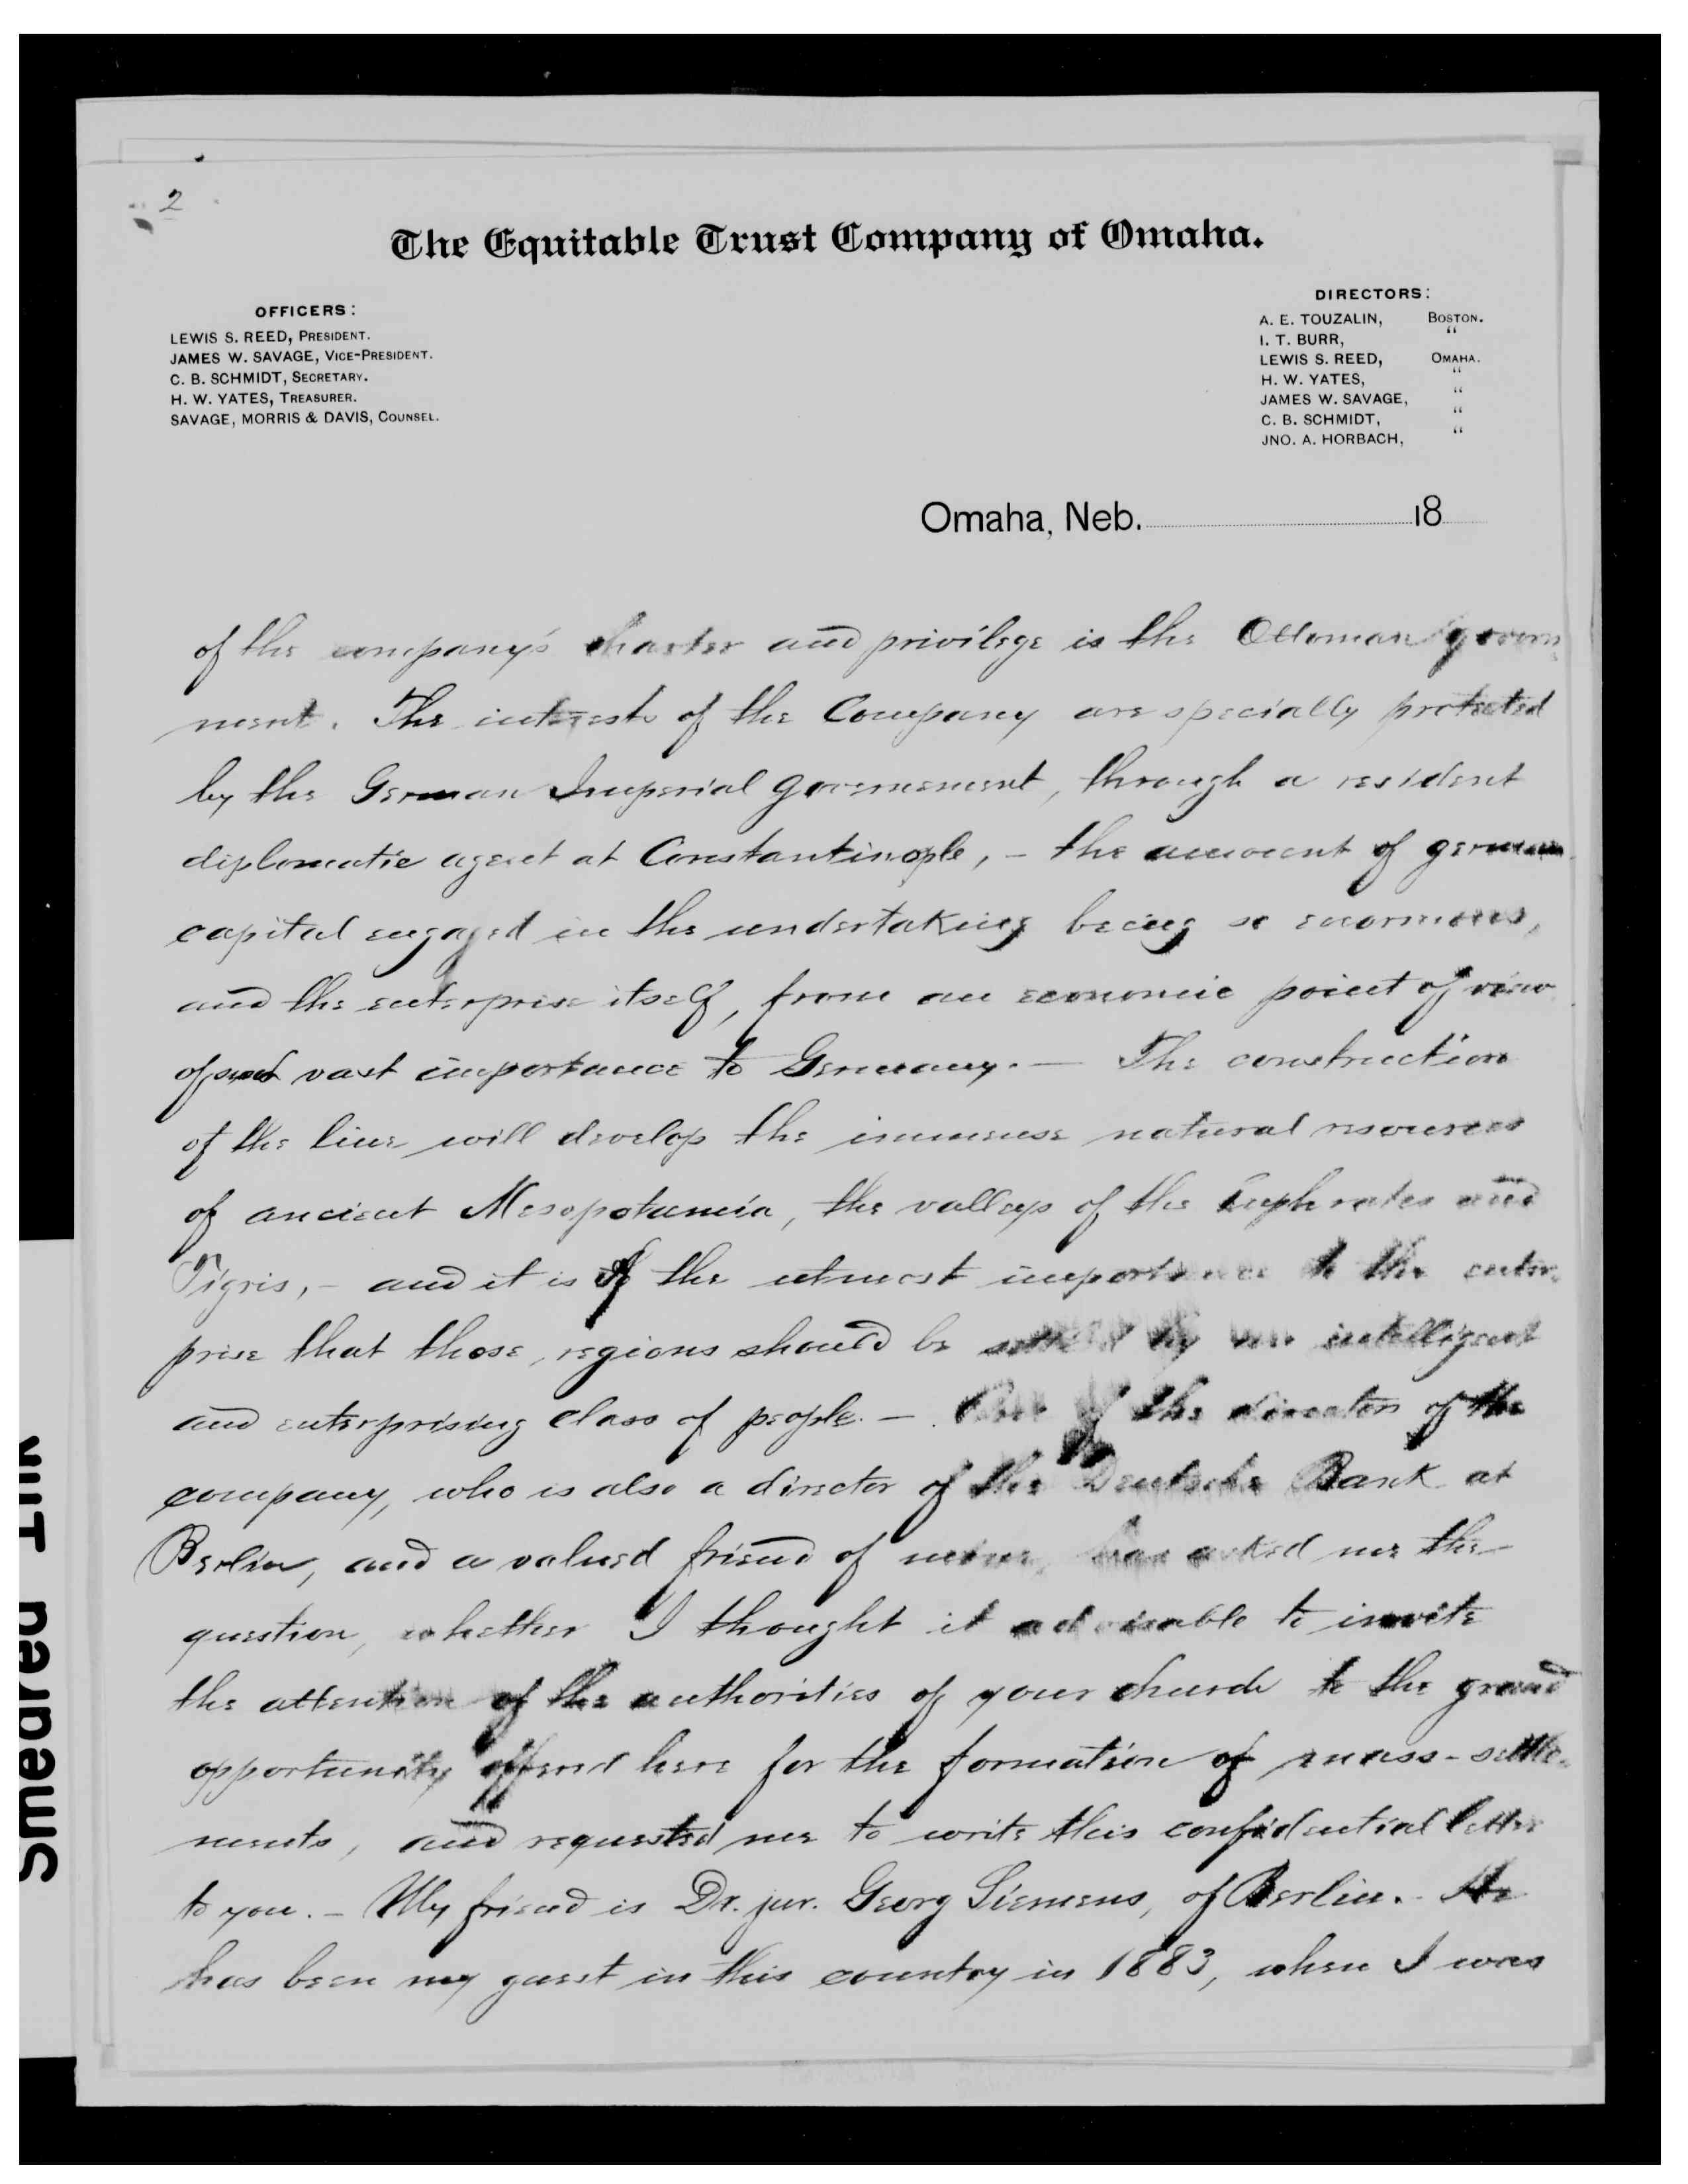 2
The Equitable Trust Company of Omaha.
OFFICERS:
LEWIS S. REED, PRESIDENT.
JAMES W. SAVAGE, VICE-PRESIDENT.
C. B. SCHMIDT, SECRETARY.
H. W. YATES, TREASURER.
SAVAGE, MORRIS & DAVIS, COUNSEL.
DIRECTORS:
A. E. TOUZALIN, BOSTON.
I. T. BURR, "
LEWIS S. REED, OMAHA.
H. W. YATES, "
JAMES W. SAVAGE, "
C. B. SCHMIDT, "
JNO. A. HORBACH, "
Omaha, Neb. 18
of the company's charter and privilege is the Ottoman govern
ment. The interests of the Company are specially protected
by the German Imperial government, through a resident
diplomatic agent at Constantinople, - the amount of german
capital engaged in the undertaking being so enormous,
and the enterprise itself, from an economic point of view
of vast importance to Germany. — The construction
of the line will develop the immense natural resources
of ancient Mesopotamia, the valleys of the Euphrates and
Tigris, - and it is of the utmost importance to the enter-
prise that those regions should be settled by an intelligent
and enterprising class of people. — One of the directors of the
company, who is also a director of the Deutsche Bank at
Berlin, and a valued friend of mine, has asked me the
question, whether I thought it advisable to invite
the attention of the authorities of your church to the grand
opportunity offered here for the formation of mass-settle-
ments, and requested me to write this confidential letter
to you. - My friend is Dr. jur. Georg Siemens, of Berlin. - He
has been my guest in this country in 1883, when I was
Smedred